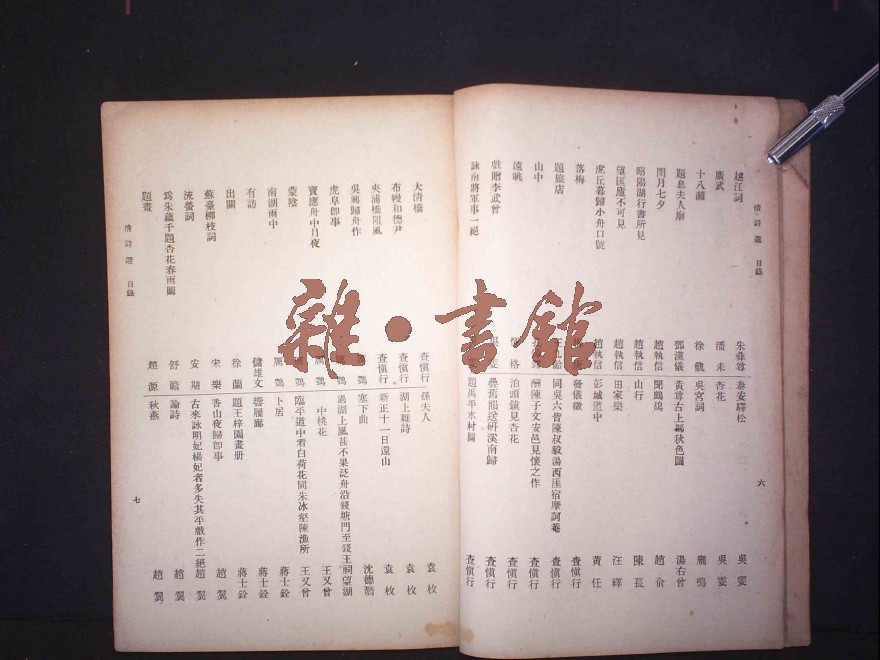 清詩選 目錄
六
越江詞 朱彝尊
廣武 潘耒
十八灘 徐釚
題息夫人廟 鄧漢儀
閏月七夕 趙執信
昭陽湖行書所見 趙執信
望匡廬不可見 趙執信
虎丘暮歸小舟口號 趙執信
落梅
題旅店
山中
遠眺 格
戲贈李武曾 吳雯
詠南將軍事一絕
泰安驛松 吳雯
杏花 吳雯
吳宮詞 龐鳴
黃尊古上郡秋色圖 湯右曾
聞鷓鴣 趙俞
山行 陳萇
田家樂 汪繹
彭城道中 黃任
發儀徵 查愼行
同吳六皆陳叔毅湯西崖宿摩訶菴 查愼行
酬陳子文安邑見懷之作 查愼行
泊頭鎮見杏花 查愼行
疊舊韻送硏溪南歸 查愼行
題禹平水村圖 查愼行
大清橋 查愼行
布幔和德尹 查愼行
夾浦橋阻風 查愼行
吳興歸舟作 厲鶚
虎阜卽事 厲鶚
寶應舟中月夜 厲鶚
蒙陰 厲鶚
南湖雨中 厲鶚
有訪 儲雄文
出關 徐蘭
蘇臺柳枝詞 宋樂
流螢詞 安期
爲朱蘊千題杏花春雨圖 舒瞻
題畫 趙源
孫夫人 袁枚
湖上雜詩 袁枚
新正十一日還山 袁枚
塞下曲 沈德潛
過湖上風甚不果泛舟沿錢塘門至錢王祠望湖
中桃花 王又曾
臨平道中看白荷花同朱冰壑陳漁所 王又曾
卜居 蔣士銓
響屧廊 蔣士銓
題王梓園畫册 蔣士銓
香山夜歸卽事 趙翼
古來詠明妃楊妃者多失其平戲作二絕 趙翼
論詩 趙翼
秋燕 趙翼
清詩選 目錄
七
雜·書館